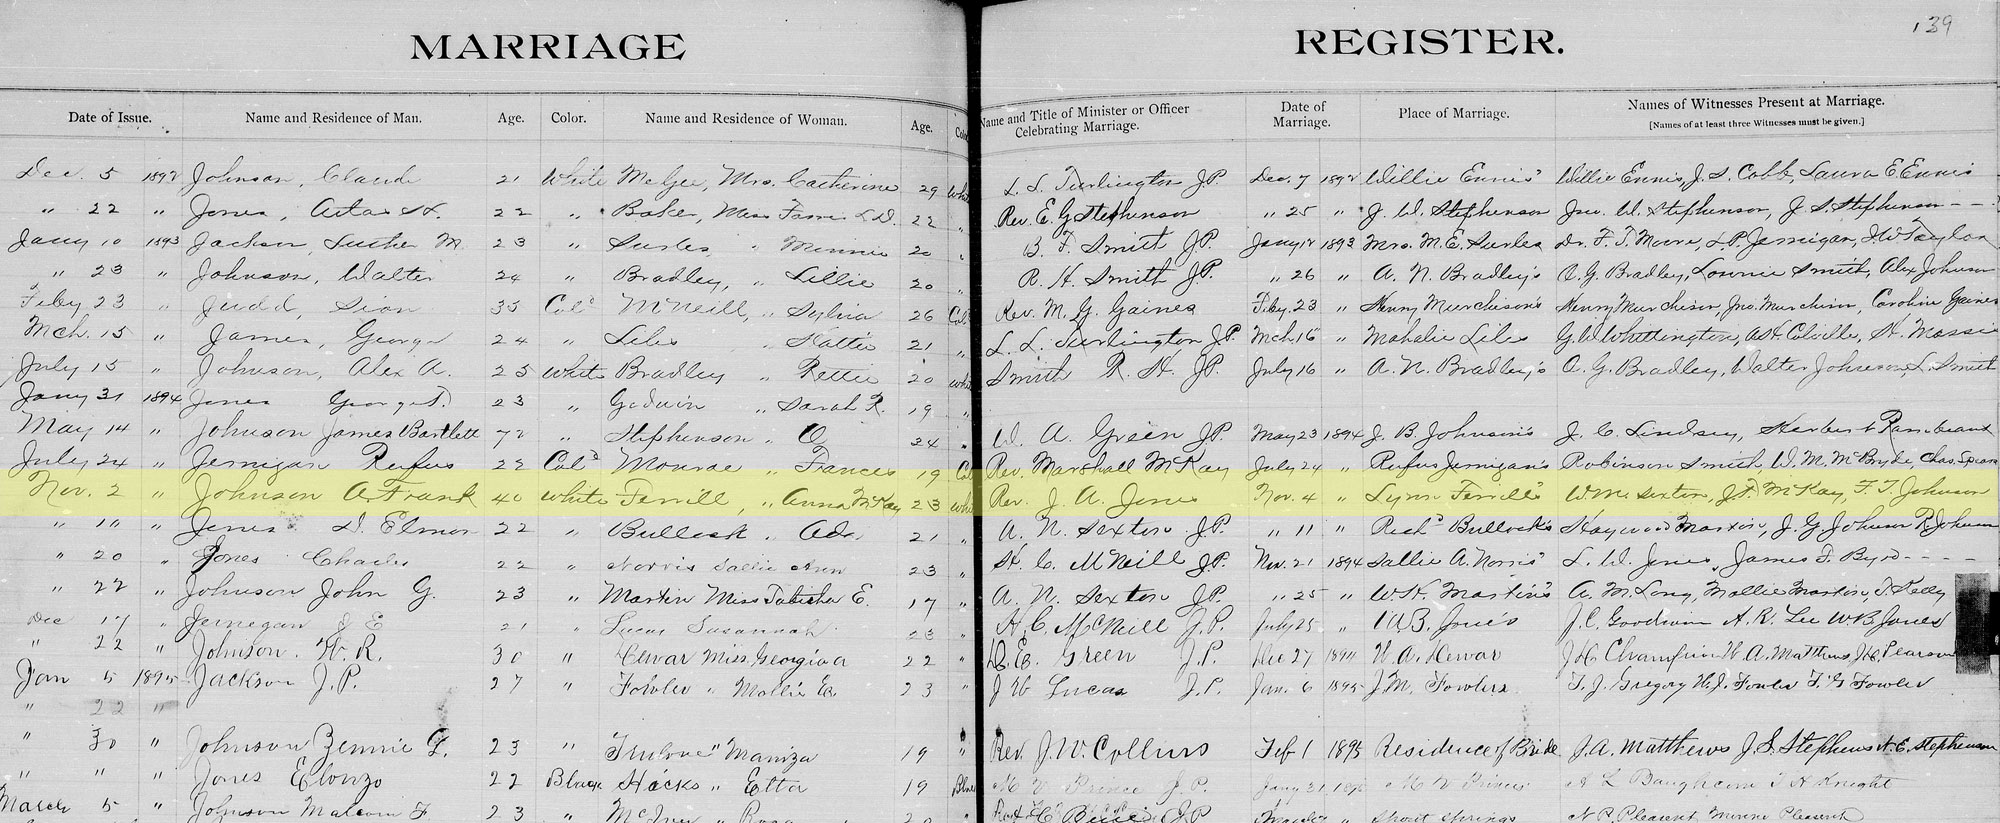 139
MARRIAGE REGISTER.
Date of Issue. Name and Residence of Man. Age. Color. Name and Residence of Woman. Age. Name and Title of Minister or Officer Celebrating Marriage. Date of Marriage. Place of Marriage. Names of Witnesses Present at Marriage. [Names of at least three Witnesses must be given.]
Dec. 5 1892 Johnson, Claude 21 White McGee, Mrs. Catherine 29 L. L. Turlington J.P. Dec. 7 1892 Willie Ennis' Willie Ennis, J. S. Cobb, Laura E Ennis
" 22 " Jones, 22 " Baker, Miss 22 " Rev. E. G Stephenson " 25 " J. W. Stephenson Jno. W. Stephenson, J. S. Stephenson - - -
Jany 10 1893 Jackson, Luther M. 23 " Surles, " Minnie 20 " B. F. Smith J.P. Jany 12 1893 Mrs. M. E. Surles Dr. F. T. Moore, J. W. Taylor
" 23 " Johnson, Walter 24 " Bradley, " Lillie 20 " R. H. Smith J.P. " 26 " A. N. Bradley's A. G. Bradley, Lonnie Smith, Alex Johnson
Feby 23 " Judd, Sion 35 Cold McNeill, " Sylvia 26 Cold Rev. M. G. Gaines Feby. 23 " Henry Murchison's Henry Murchison, Jno. Murchison, Caroline Gaines
Mch. 15 " James, George 24 " Liles " Hattie 21 " L. L. Turlington J.P. Mch 16 " Mahalie Liles G. W. Whittington, H. Massie
July 15 " Johnson, Alex A. 25 White Bradley " Rettie 20 Smith R. H. J.P. July 16 " A. N. Bradley's A. G. Bradley, Walter Johnson, L. Smith
Jany 31 1894 Jones George 23 " Godwin " Sarah R. 19 "
May 14 " Johnson James Bartlett 72 " Stephenson " 24 " W. A. Green J.P. May 23 1894 J. B. Johnson's J. C. Lindsey, Herbert
July 24 " Jernigan Rufus 22 Cold Monroe " Frances 19 Co Rev. Marshall McKay July 24 " Rufus Jernigan's Robinson Smith, W. M. McBryde, Chas. Spears
Nov. 2 " Johnson A. Frank 40 White Ferrill, " Anna McKay 23 Rev. J. A. Jones Nov. 4 " Lynn Ferrill's W. M. Sexton, J. A. McKay, F. T. Johnson
" 10 " Jones D. Elmon 22 " Bullock " Ada 21 " A. N. Sexton J.P. " 11 " Richd Bullock's Haywood Martin, J. G. Johnson R Johnson
" 20 " Jones Charles 22 " Norris Sallie Ann 23 " H. C. McNeill J.P. Nov. 21 1894 Sallie A. Norris' L. W. Jones, James F. Byrd - - - -
" 22 " Johnson John G. 23 " Martin Miss Tabitha E. 17 " A. N. Sexton J.P. " 25 " W. H. Martin's A. M. Long, Mollie Martin, J. Kelly
Dec 17 " Jernegan J E 21 " Lucas Susannah 23 " H. C. McNeill J.P. July 25 " W. B. Jones J. C. Goodwin A. R. Lee W B Jones
" 22 " Johnson. W. R. 30 " Dewar Miss Georgiana 22 " Green J.P. Dec 27 1894 W. A. Dewar J H Champion W. A. Matthews, J. H. Pearson
Jan 5 1895 Jackson J. P. 27 " Fowler " Mollie E. 23 " J W Lucas J.P. Jan. 6 1895 J. M. Fowlers T. J. Gregory W. J. Fowler T. G Fowler
" 22 "
" 30 " Johnson Bennie L. 23 " Truelove " Maniza 19 " Rev J. W. Collins Feb 1 1895 Residence of Bride J. A. Matthews J. S. Stephens N. E. Stephenson
" " " Jones Elonzo 22 Black Hicks " Etta 19 M V Prince J.P. Jany 31 M V Prince's A L Baugham T H Knight
March 5 " Johnson Malcom F 23 " McIver " Rosa J.P. March Spout Springs N. P. Pleasent Minnie Pleasent